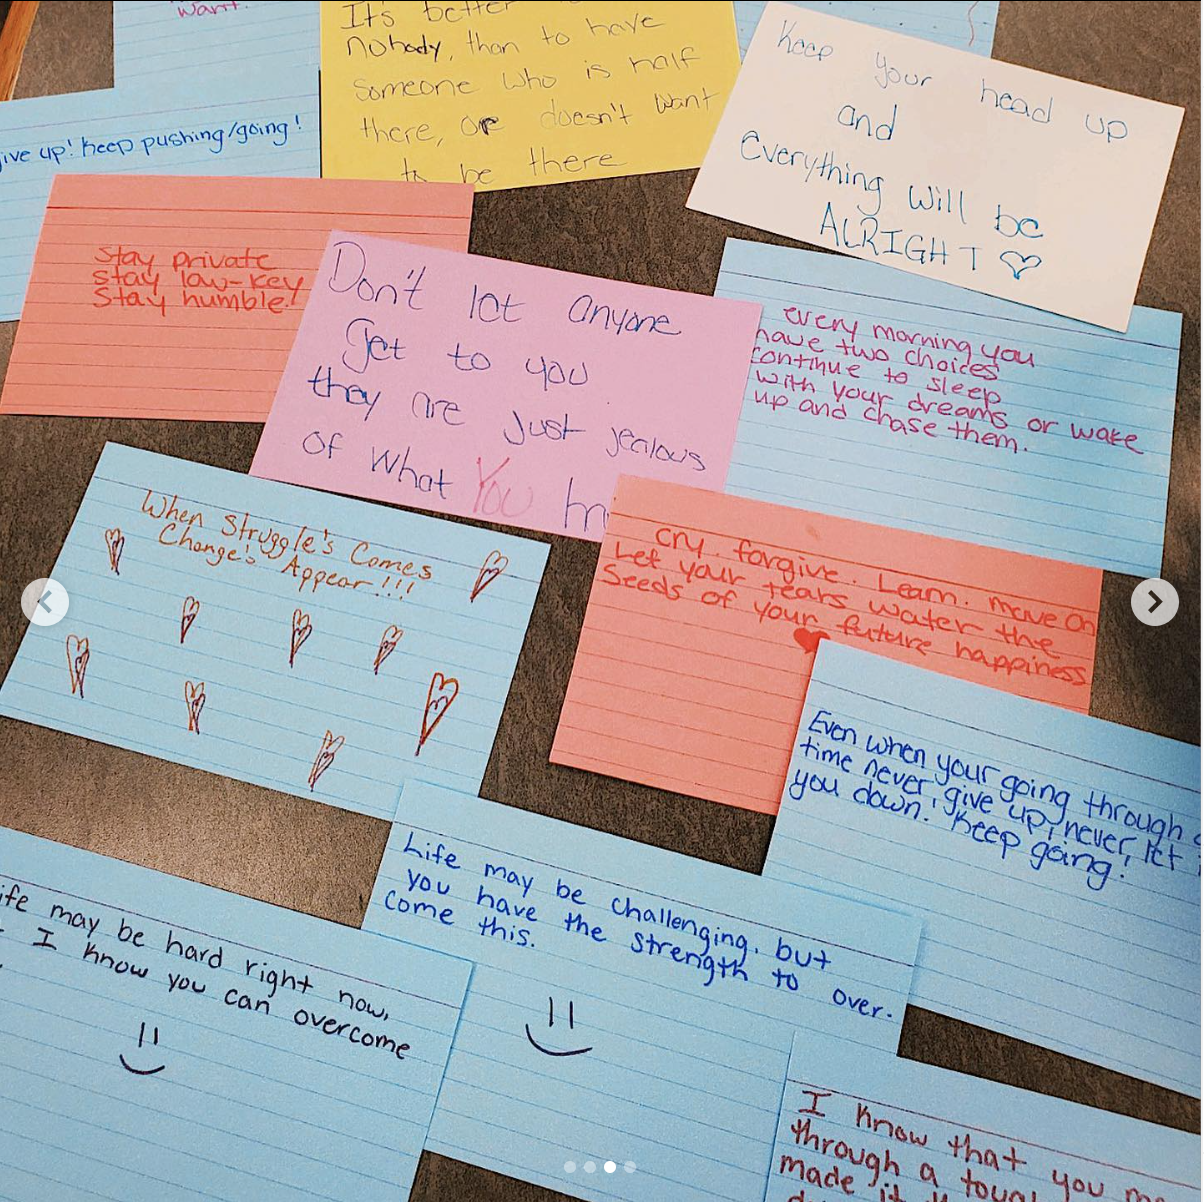 want.
It's better
nobody, than to have
someone who is half
there, or doesn't want
to be there
Keep your head up
and
Everything will be
ALRIGHT
ive up! keep pushing/going!
Stay private
stay low-key
Stay humble!
Don't let anyone
get to you
they are just jealous
of what You
every morning you
have two choices
continue to sleep
with your dreams or wake
up and chase them.
When Struggle's Comes
Change's Appear!!!!
cry. forgive. Learn. move on
Let your tears water the
Seeds of your future happiness
Even when your going through
time never give up, never let
you down! Keep going!
Life may be challenging, but
you have the strength to over-
come this.
ife may be hard right now,
I know you can overcome
I know that you
through a
made it